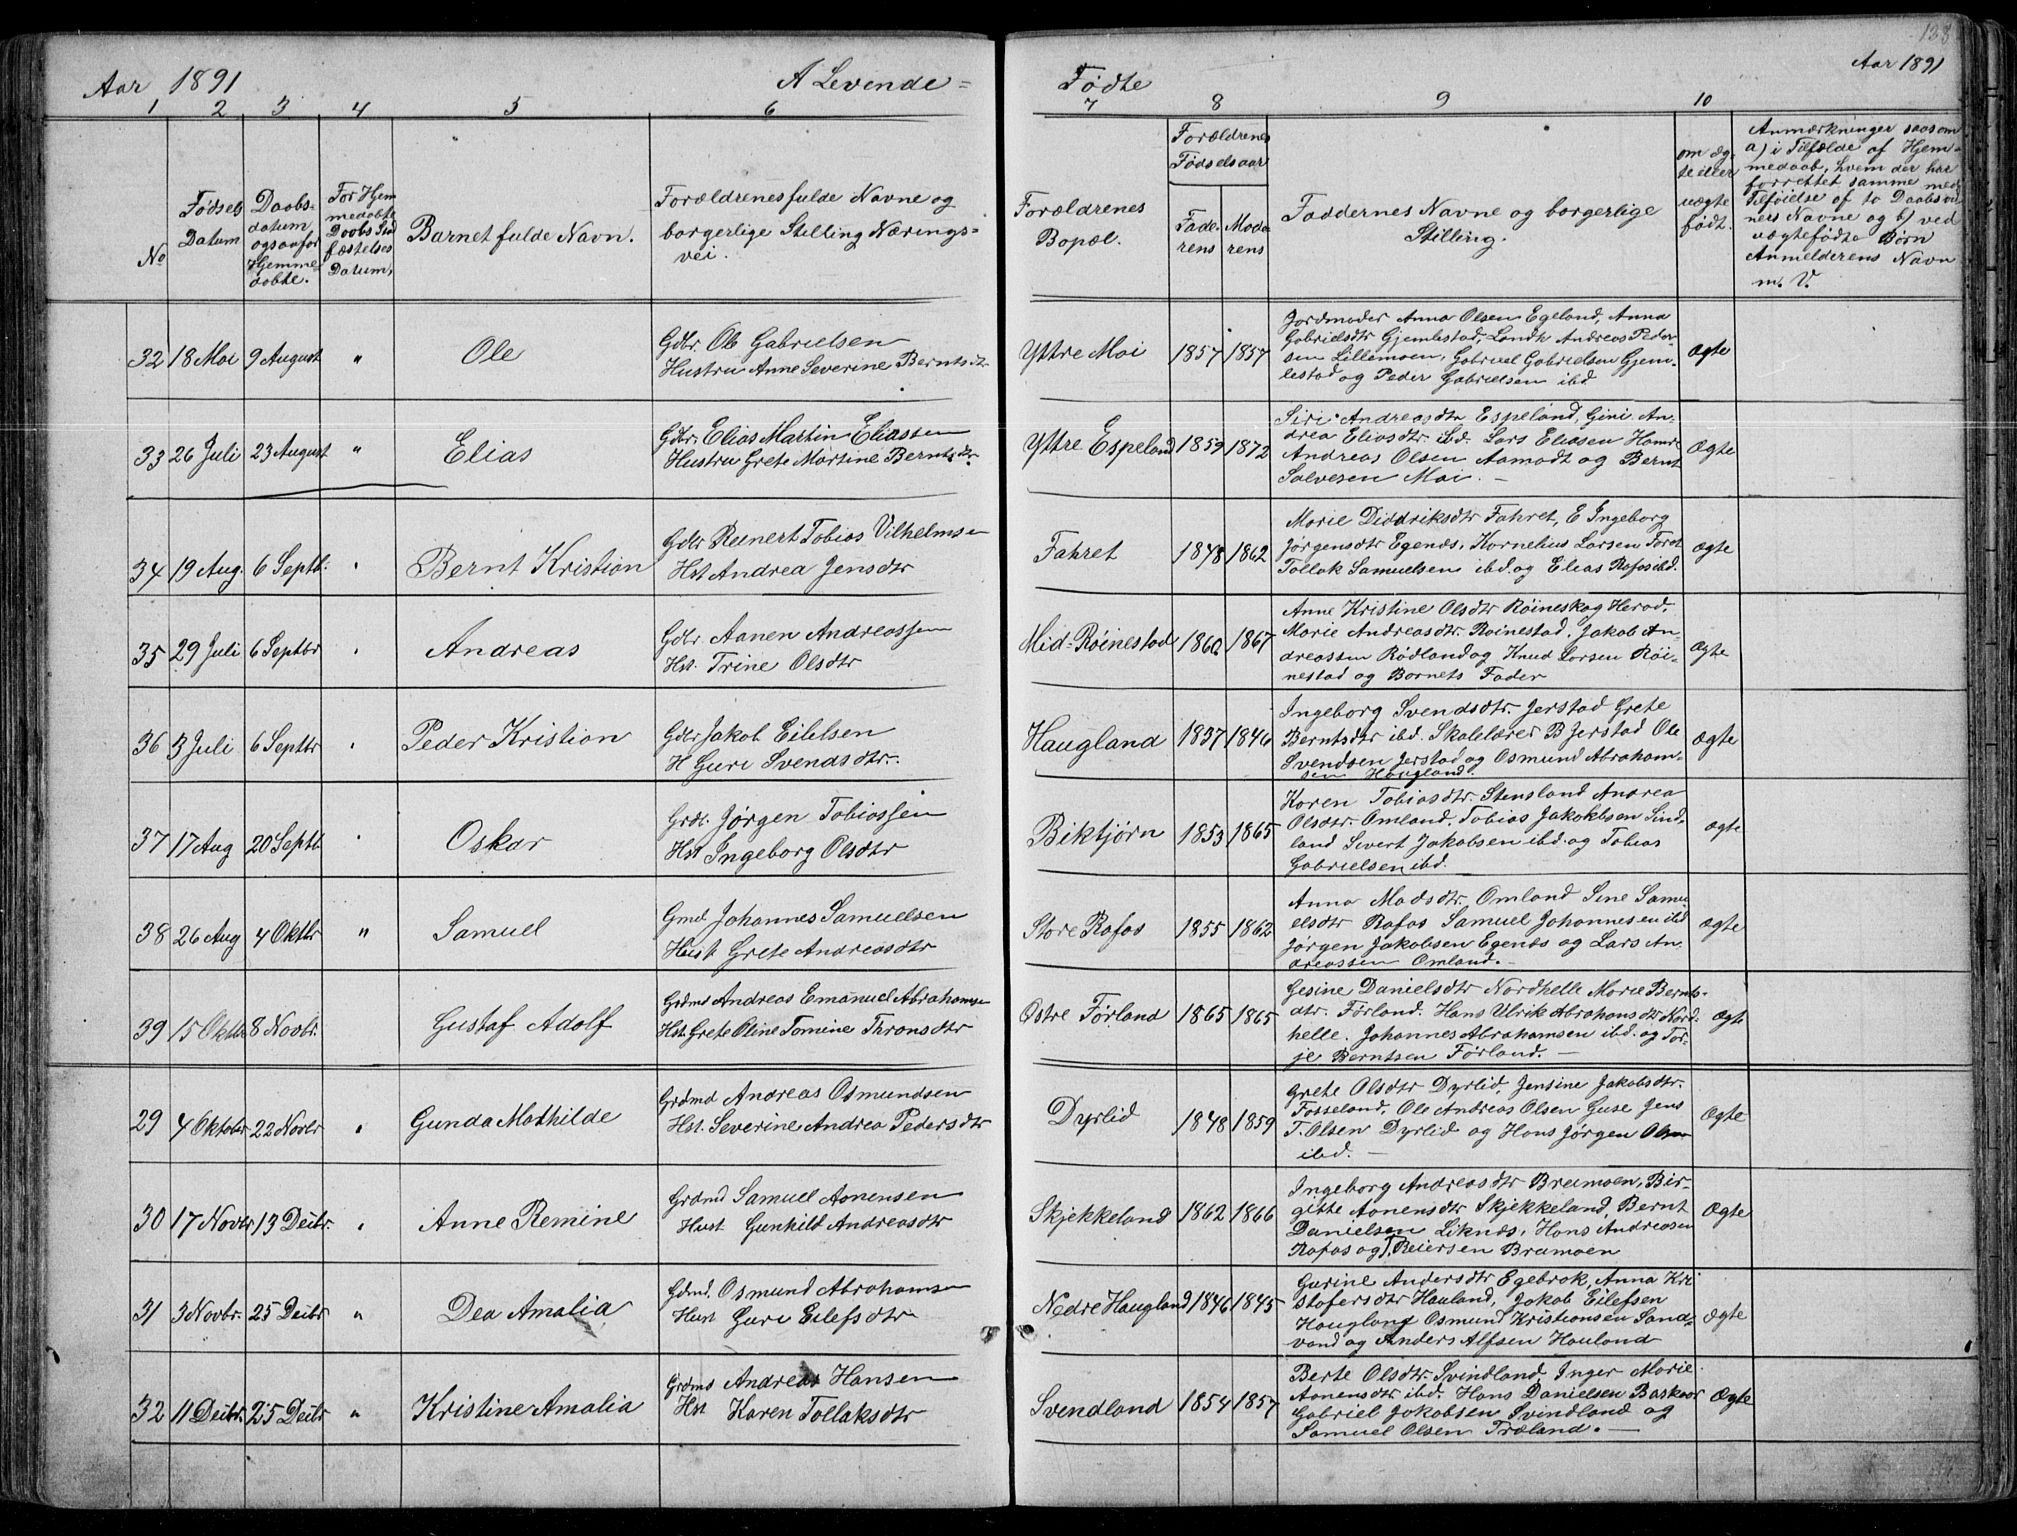 138
Aar 1891 A Levende= Født​e Aar 1891
1 2 3 4 5 6 7 8 9 10
No
Fødsels
Datum
Daabs-
datum
ogsaa for
Hjemme-
døbte.
For Hjem
medøbte
Daabs Stad
fæstelses
Datum,
Barnet fulde Navn.
Forældrenes fulde Navne og
borgerlige Stilling Nærings=
vei.
Forældrenes
Bopæl.
Forældrenes
Fødselsaar
Fade-
rens
Mode
rens
Faddernes Navne og borgerlige
Stilling.
om æg-
te eller
uægte
født.
Anmærkninger saasom
a) i Tilfælde af Hjem-
medaab, hvem der har
forrettet samme med
Tilføielse af to Daabsvid-
ners Navne og b) ved
uægtefødte Børn
Anmelderens Navn
m. V.
32 18 Mai 9 August " Ole
Gdbr. Ole Gabrielsen
Hustru Anne Severine Berntsdtr
Yttre Moi 1857 1857
Jordmoder Anna Olsen Egeland, Anna
Gabrielsdtr Gjemlestad, Landh Andreas Peder-
sen Lillemoen, Gabriel Gabrielsen Gjem-
lestad og Peder Gabrielsen ibd
Ægte
33 26 Juli 23 August " Elias
Gdbr. Elias Martin Eliassen
Hustru Grete Martine Berntsdtr.
Yttre Espeland 1859 1872
Siri Andreasdtr Espeland, Gini An-
drea Eliasdtr. ibd. Lars Eliasen Hamr.
Andreas Olsen Aamodt og Bernt
Salvesen Moi. —
Ægte
34 19 Aug. 6 Septb. " Bernt Kristian
Gdbr Reinert Tobias Vilhelmsen
Hst Andrea Jensdtr
Fahret 1848 1862
Marie Didriksdtr Fahret, E Ingeborg
Jørgensdtr Egenes, Kornelius Larsen Faret
Tollak Samuelsen ibd. og Elias Rafos ibd.
Ægte
35 29 Juli 6 Septbr " Andreas
Gdbr Aanen Andreassen
Hst. Trine Olsdtr
Mid=Røinestad 1860 1867
Anne Kristine Olsdtr Røineskog Herad,
Marie Andreasdtr. Røinestad, Jakob An-
dreassen Rødland og Knud Larsen Røi-
nestad og Barnets Fader
Ægte
36 3 Juli 6 Septbr " Peder Kristian
Gdbr Jakob Eilelsen
H Guri Svendsdtr.
Haugland 1837 1846
Ingeborg Svendsdtr. Jerstad Grete
Berntsdtr ibd. Skolelærer B Jerstad Ole
Svendsen Jerstad og Osmund Abraham-
sen Haugland.
Ægte
37 17 Aug 20 Septb. " Oskar
Grdr. Jørgen Tobiassen
Hst Ingeborg Olsdtr
Biktjørn 1853 1865
Karen Tobiasdtr. Stensland Andrea
Olsdtr. Omland. Tobias Jakobsen Sind-
land Sivert Jakobsen ibd. og Tobias
Gabrielsen ibd.
Ægte
38 26 Aug 4 Oktbr " Samuel
Gmd Johannes Samuelsen
Hust Grete Andreasdtr
Store Rafos 1855 1862
Anna Madsdtr Omland Sine Samu
elsdtr Rafos Samuel Johannesen ibd
Jørgen Jakobsen Egenes og Lars An-
dreassen Omland. —
Ægte
39 15 Oktbr 8 Novbr. Gustaf Adolf
Grdmd Andreas Emanuel Abrahamsen
Hst. Grete Oline Tomine Thronsdtr
Østre Førland 1865 1865
Gesine Danielsdtr Nordhelle Marie Bernts-
dtr. Førland. Hans Ulrik Abrahamsdtr Nord-
helle. Johannes Abrahamsen ibd. og Tor-
je Berntsen Førland. —
Ægte
29 4 Oktober 22 Novbr " Gunda Mathilde
Grdmd Andreas Osmundsen
Hst. Severine Andrea Pedersdtr
Dyrlid 1848 1859
Grete Olsdtr Dyrlid, Jensine Jakobsdtr.
Fosseland, Ole Andreas Olsen Guse Jens
T. Olsen Dyrlid og Hans Jørgen Olsen
ibd. —
Ægte
30 17 Novbr 13 Decbr. " Anne Remine
Grdmd Samuel Aanensen
Hust Gunhild Andreasdtr
Skjekkeland 1862 1866
Ingeborg Andreasdtr Bræmoen, Bir-
gitte Aanensdtr Skjekkeland, Bernt
Danielsen Liknes, Hans Andreasen
Rafos og T. Reiersen Bræmoen
Ægte
31 3 Novbr. 25 Decbr " Dea Amalia
Gdmd. Osmund Abrahamsen
Hust Guri Eilefsdtr
Nedre Haugland 1846 1845
Gurine Andersdtr Egebrok, Anna Kri
stofersdtr Hauland, Jakob Eilefsen
Haugland Osmund Kristiansen Sand-
vand og Anders Alfsen Hauland
Ægte
32 11 Decbr. 25 Decbr " Kristine Amalia
Grdmd Andreas Hansen
Hst Karen Tollaksdtr
Svendland 1854 1857
Berte Olsdtr. Svindland, Inger Marie
Aanensdtr ibd. Hans Danielsen Baskaar
Gabriel Jakobsen Svindland og
Samuel Olsen Træland. —
Ægte